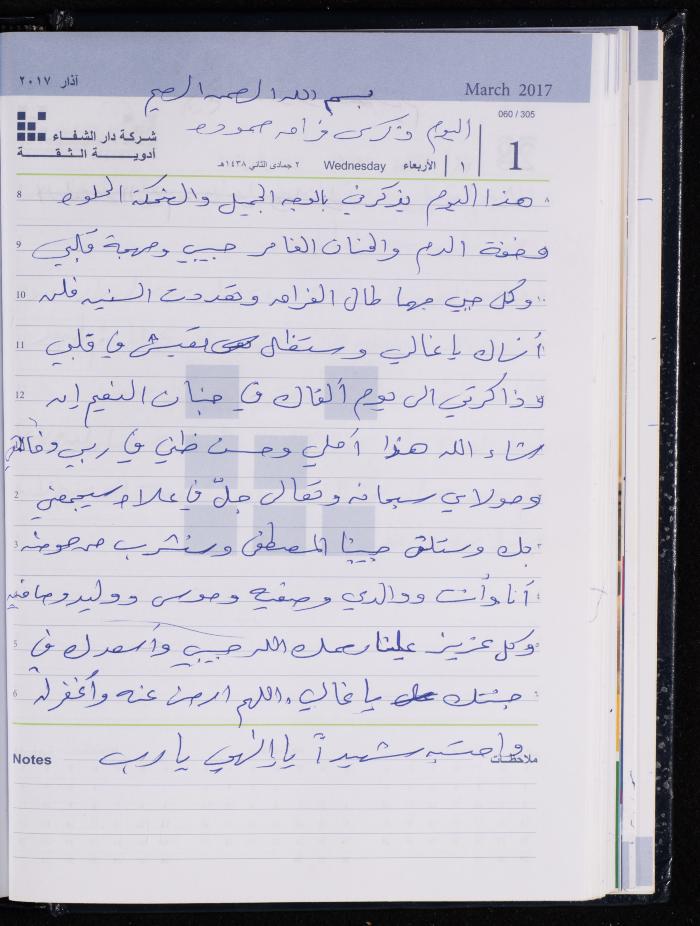 آذار ٢٠١٧
March 2017
بسم الله الرحمن الرحيم
060 / 305
شركة دار الشفاء
أدوية الثقة
اليوم ذكرى فراق حمودة
1
١ الأربعاء Wednesday ٢ جمادى الثاني ١٤٣٨هـ
8 هذا اليوم يذكرني بالوجه الجميل والضحكة الحلوة
9 وخفة الدم والحنان الغامر حبيبي ومهجة قلبي
10 وكل حبي مهما طال الفراق وتعددت السنين فلن
11 أنساك يا غالي وستظل تعيش في قلبي
12 وذاكرتي الى يوم ألقاك في جنان النعيم إن
شاء الله هذا أملي وحسن ظني في ربي وخالقي
2 ومولاي سبحانه وتعالى جلّ في علاه سيجمعني
3 بك وستلقى حبيبنا المصطفى وسنشرب من حوضه
أنا وأنت ووالدي وصفية وموسى ووليد وصافيه
5 وكل عزيز علينا رحمك الله حبيبي وأسعدك في
6 جنتك يا غالي، اللهم ارض عنه وأغفر له
Notes واحتسبه شهيداً يا إلهي يا رب ملاحظات